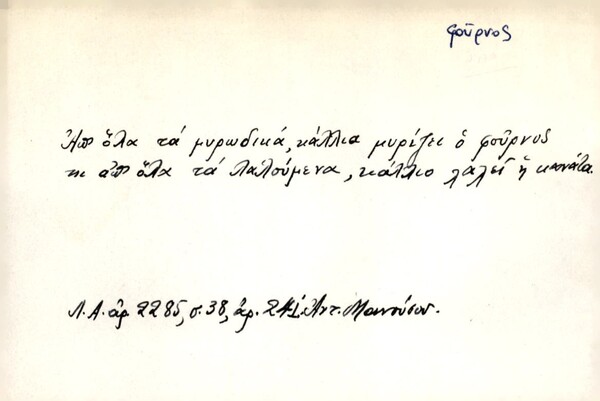 φοῦρνος
Ἀπ ὅλα τά μυρωδικά, κάλλια μυρίζει ὁ φοῦρνος
κι ἀπ ὅλα τά λαλούμενα, κάλλιο λαλεῖ ἡ κανάτα.
Λ.Α. ἀρ. 2285, σ. 38, ἀρ. 241. Ἀντ. Μανούσου.